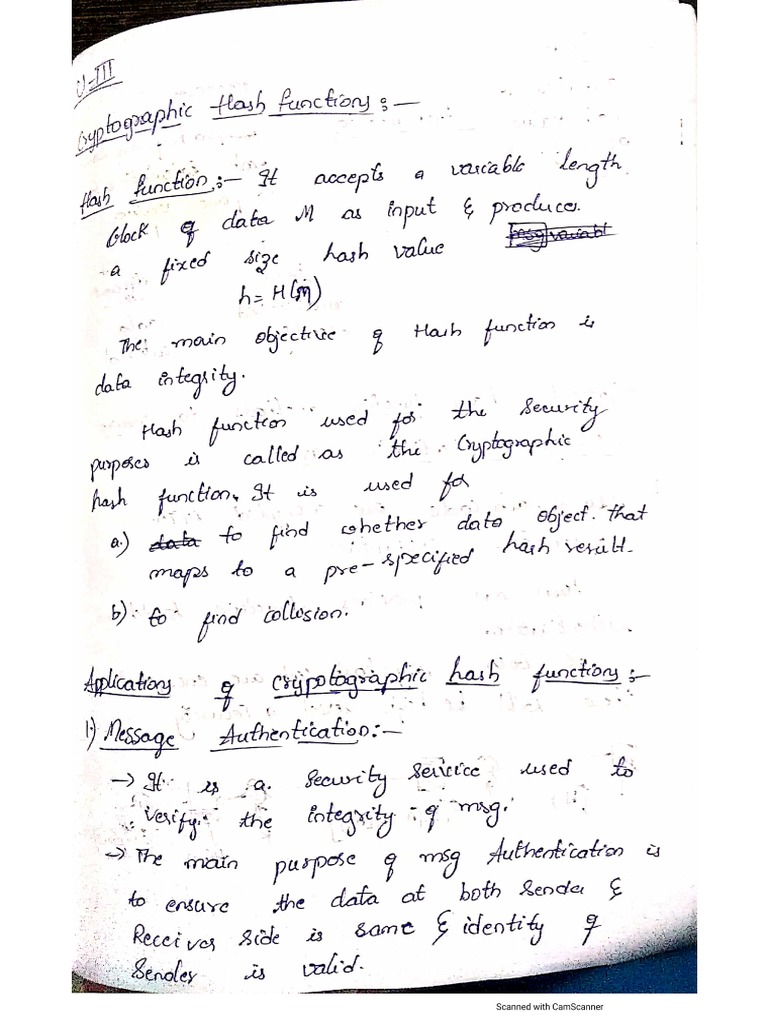 U-III
Cryptographic Hash Functions :-
Hash function :- It accepts a variable length
block of data M as input & produces
a fixed size hash value
h = H(M)
The main objective of Hash function is
data integrity.
Hash function used for the security
purposes is called as the Cryptographic
hash function. It is used for
a.) data to find whether data object that
maps to a pre-specified hash result.
b) to find collosion.
Applications of Crypotographic hash functions :-
1) Message Authentication :-
→ It is a security service used to
verify the integrity of msg.
→ The main purpose of msg Authentication is
to ensure the data at both Sender &
Receiver side is same & identity of
Sender is valid.
Scanned with CamScanner